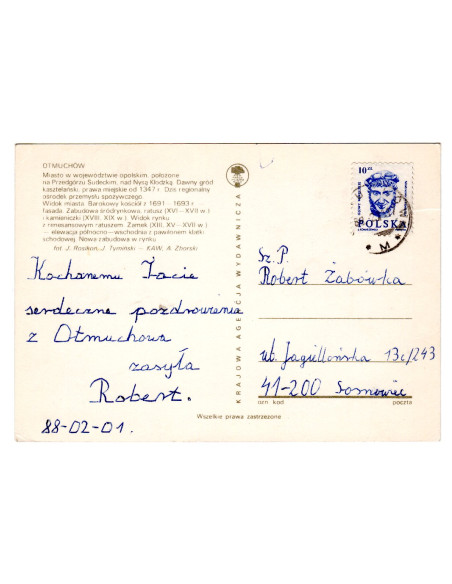 OTMUCHÓW
Miasto w województwie opolskim, położone
na Przedgórzu Sudeckim, nad Nysą Kłodzką. Dawny gród
kasztelański, prawa miejskie od 1347 r. Dziś regionalny
ośrodek przemysłu spożywczego.
Widok miasta. Barokowy kościół z 1691 - 1693 r.
fasada. Zabudowa śródrynkowa: ratusz (XVI - XVII w.)
i kamieniczki (XVIII, XIX w.). Widok rynku
z renesansowym ratuszem. Zamek (XIII, XV - XVII w.)
- elewacja północno - wschodnia z pawilonem klatki
schodowej. Nowa zabudowa w rynku
fot. J. Rosikoń, J. Tymiński - KAW, A. Zborski
Kochanemu Tacie
serdeczne pozdrowienia
z Otmuchowa
zasyła
Robert.
88-02-01.
KRAJOWA AGENCJA WYDAWNICZA
10 zł
POLSKA
M
Sz. P.
Robert Żabówka
ul. Jagiellońska 13c/243
41-200 Sosnowiec
ozn. kod
poczta
Wszelkie prawa zastrzeżone